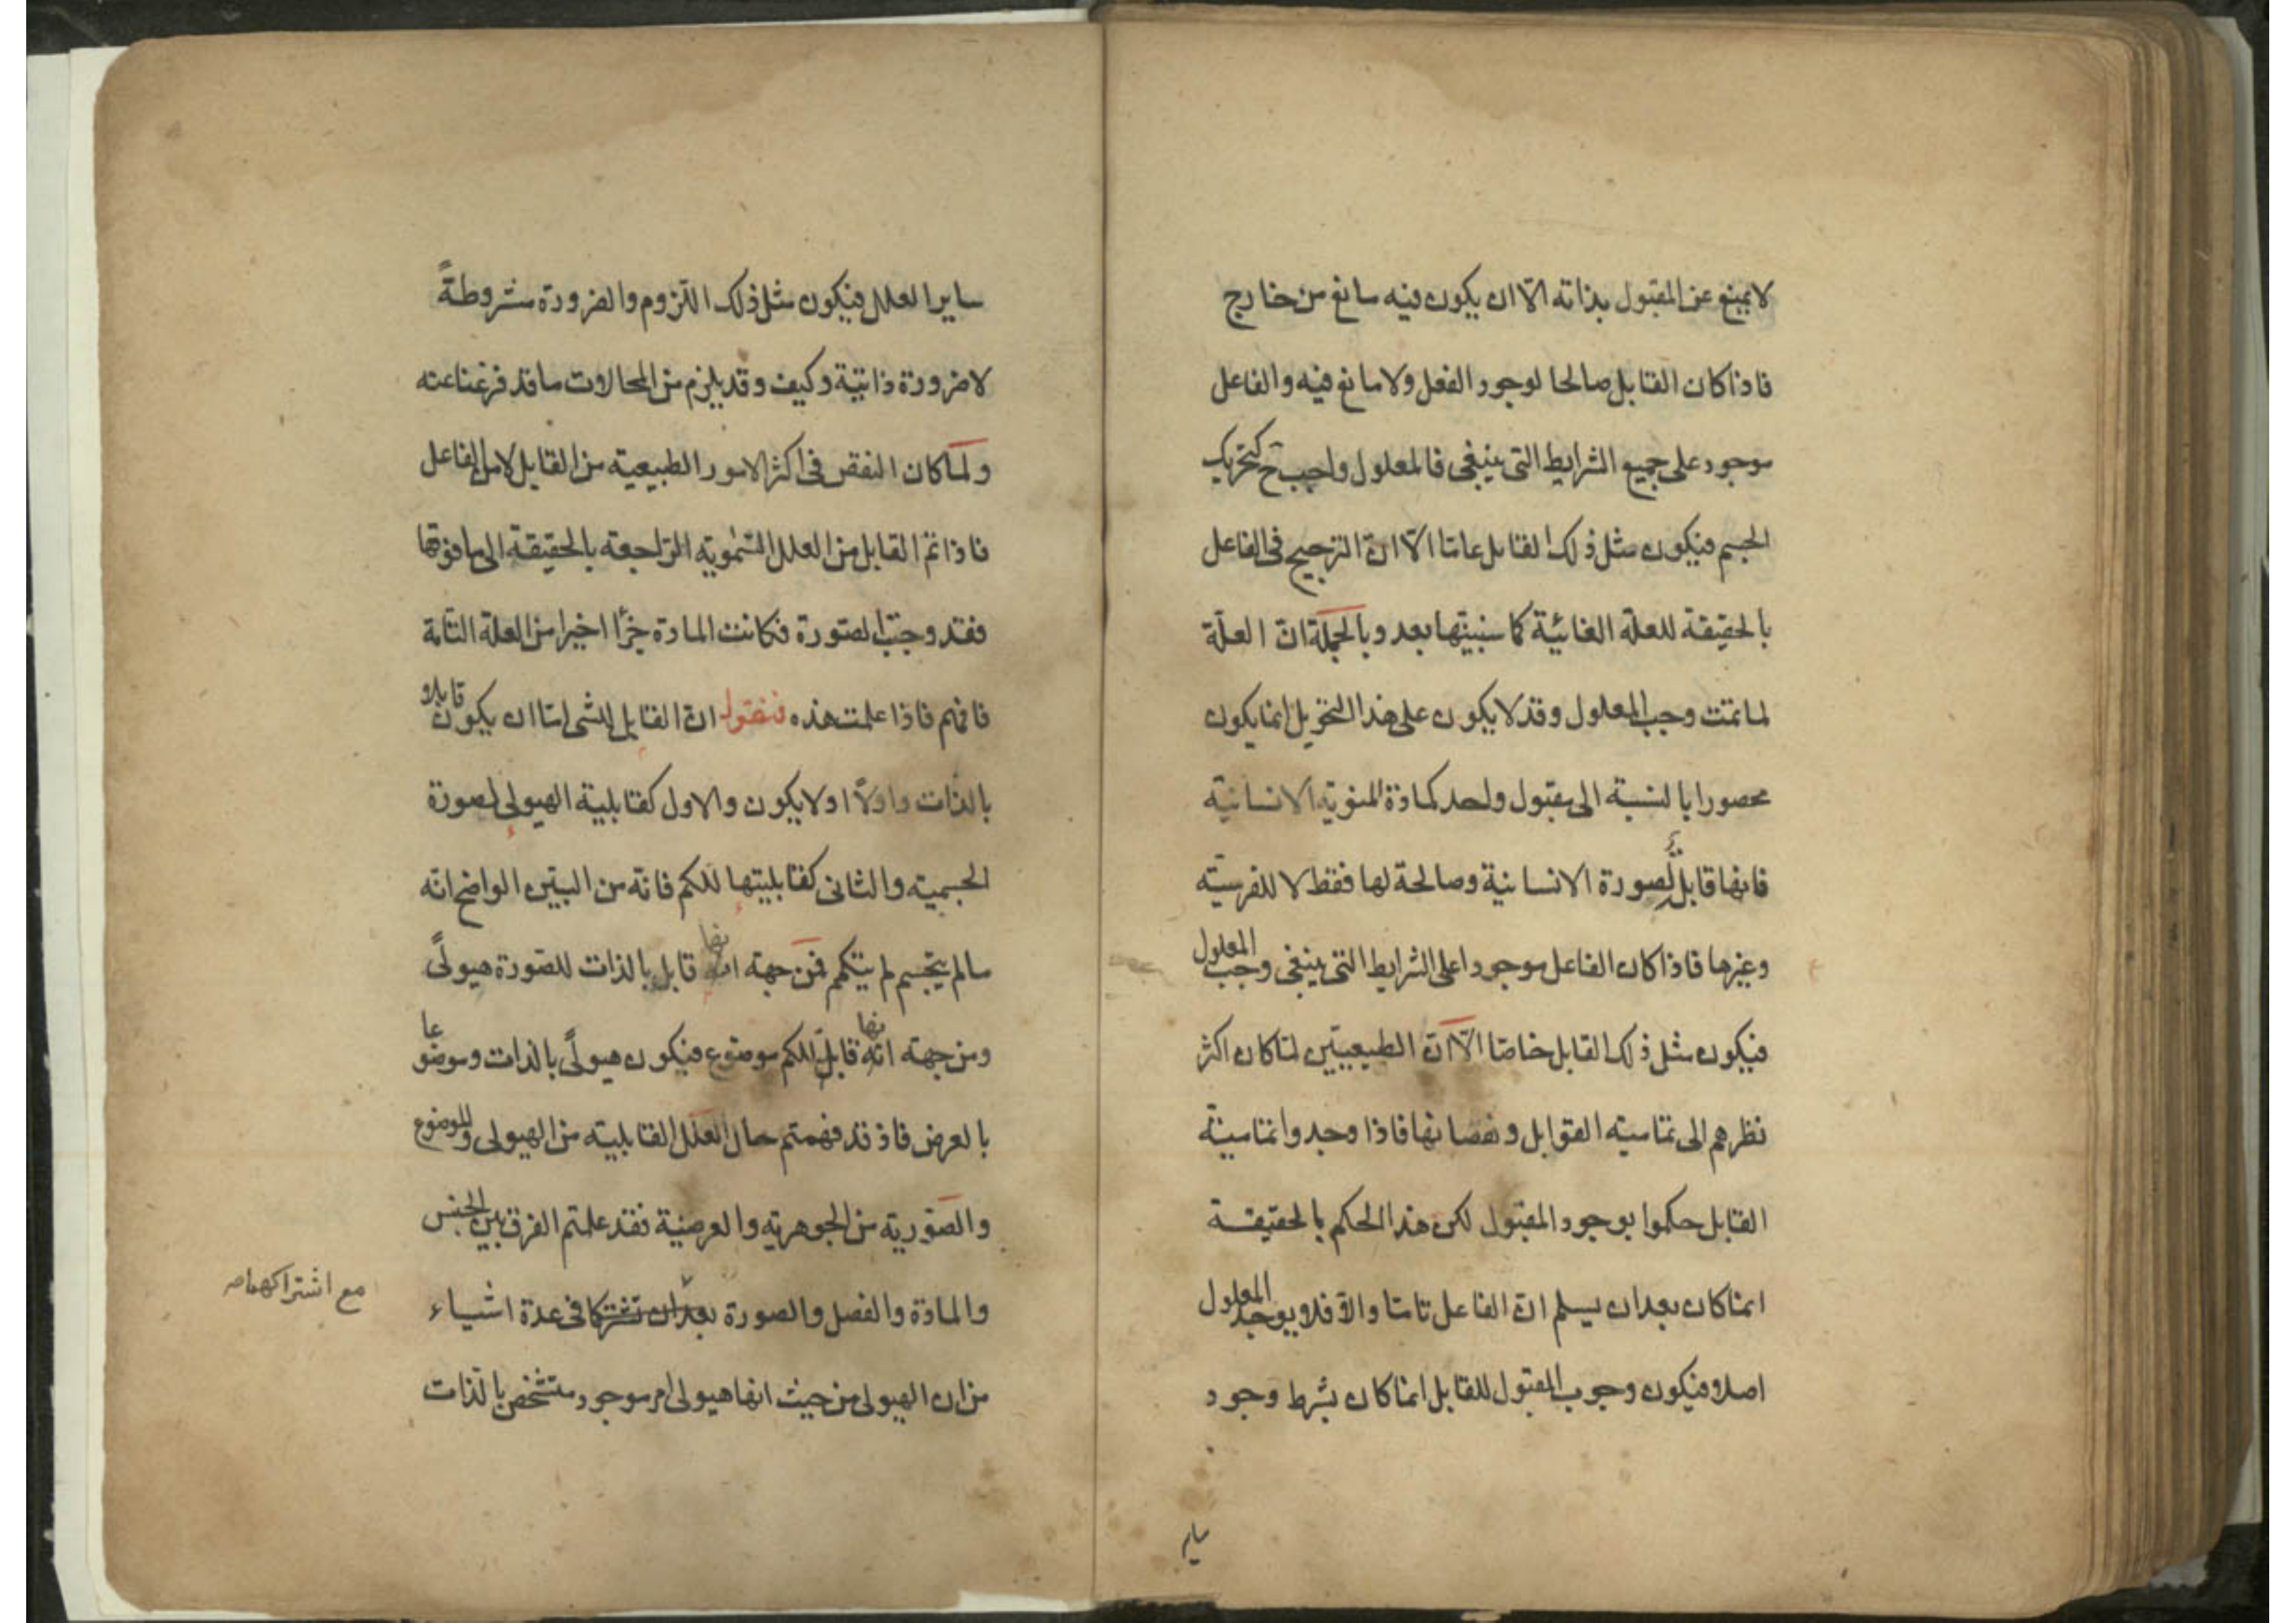 لا يمنع عن المقبول بذاته الّا ان يكون فيه مانع من خارج
فاذا كان القابل صالحا لوجود الفعل ولا مانع فيه والفاعل
موجود على جميع الشرايط التى ينبغى فالمعلول واجب ح كتحريك
الجسم فيكون مثل ذلك القابل عامّا الّا انّ الترجيح فى الفاعل
بالحقيقة للعلّة الغائيّة كما سنبيّنها بعد وبالجملة انّ العلّة
لما تمّت وجب المعلول وقد لا يكون على هذا النحو بل انما يكون
محصورا بالنسبة الى مقبول واحد كمادّة المنويّة الانسانيّة
فانها قابل لصورة الانسانية وصالحة لها فقط لا للفرسيّة
وغيرها فاذا كان الفاعل موجودا على الشرايط التى ينبغى وجب المعلول
فيكون مثل ذلك القابل خاصّا الّا انّ الطبيعيّين لمّا كان اكثر
نظرهم الى تماميّة القوابل ونقصانها فاذا وجدوا تماميّة
القابل حكموا بوجود المقبول لكن هذا الحكم بالحقيقة
انما كان بعد ان يسلم انّ الفاعل تامّا والّا فلا يوجد المعلول
اصلا فيكون وجوب المقبول للقابل انما كان بشرط وجود
ساير
ساير العلل فيكون مثل ذلك اللّزوم والضرورة مشروطةً
لا ضرورة ذاتيّة وكيف وقد يلزم من المحالات ما قد فرغنا عنه
ولمّا كان النقص فى اكثر الامور الطبيعية من القابل لا من الفاعل
فاذا تمّ القابل من العلل السّموية الرّاجعة بالحقيقة الى ما فوقها
فقد وجبت الصّورة فكانت المادة جزءًا اخيرا من العلة التامّة
فافهم فاذا علمت هذه فنقول انّ القابل للشى امّا ان يكون قابلا
بالذات واوّلًا او لا يكون والاول كقابلية الهيولى لصورة
الجسمية والثانى كقابليتها للكم فانّه من البيّن الواضح انّه
ما لم يتجسم لم يتكمم فمن جهة انها قابل بالذات للصّورة هيولًى
ومن جهة انها قابل للكم موضوع فيكون هيولًى بالذات وموضوعا
بالعرض فاذ قد فهمتم حال العلل القابلية من الهيولى والموضوع
والصّورية من الجوهرية والعرضية فقد علمتم الفرق بين الجنس
والمادّة والفصل والصورة بعد ان تشتركا فى عدة اشياء
مع اشتراكهما
من ان الهيولى من حيث انها هيولى امر موجود متشخص بالذات